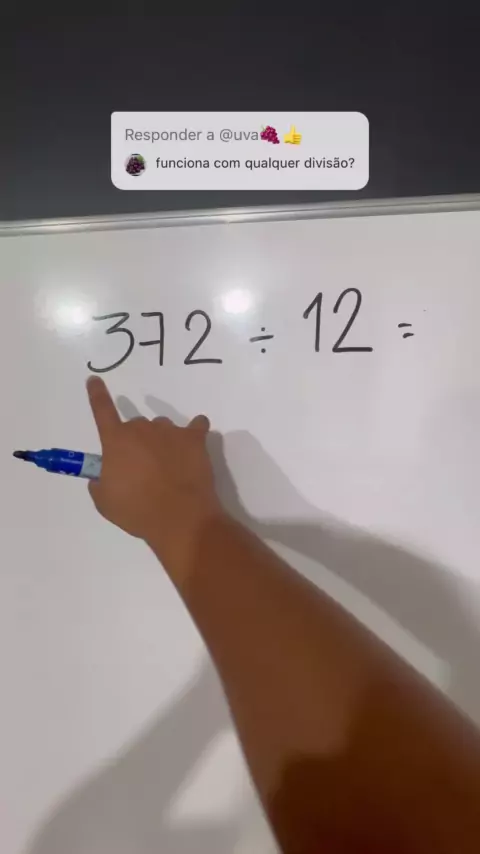 Responder a @uva🍇👍
funciona com qualquer divisão?
372 ÷ 12 =